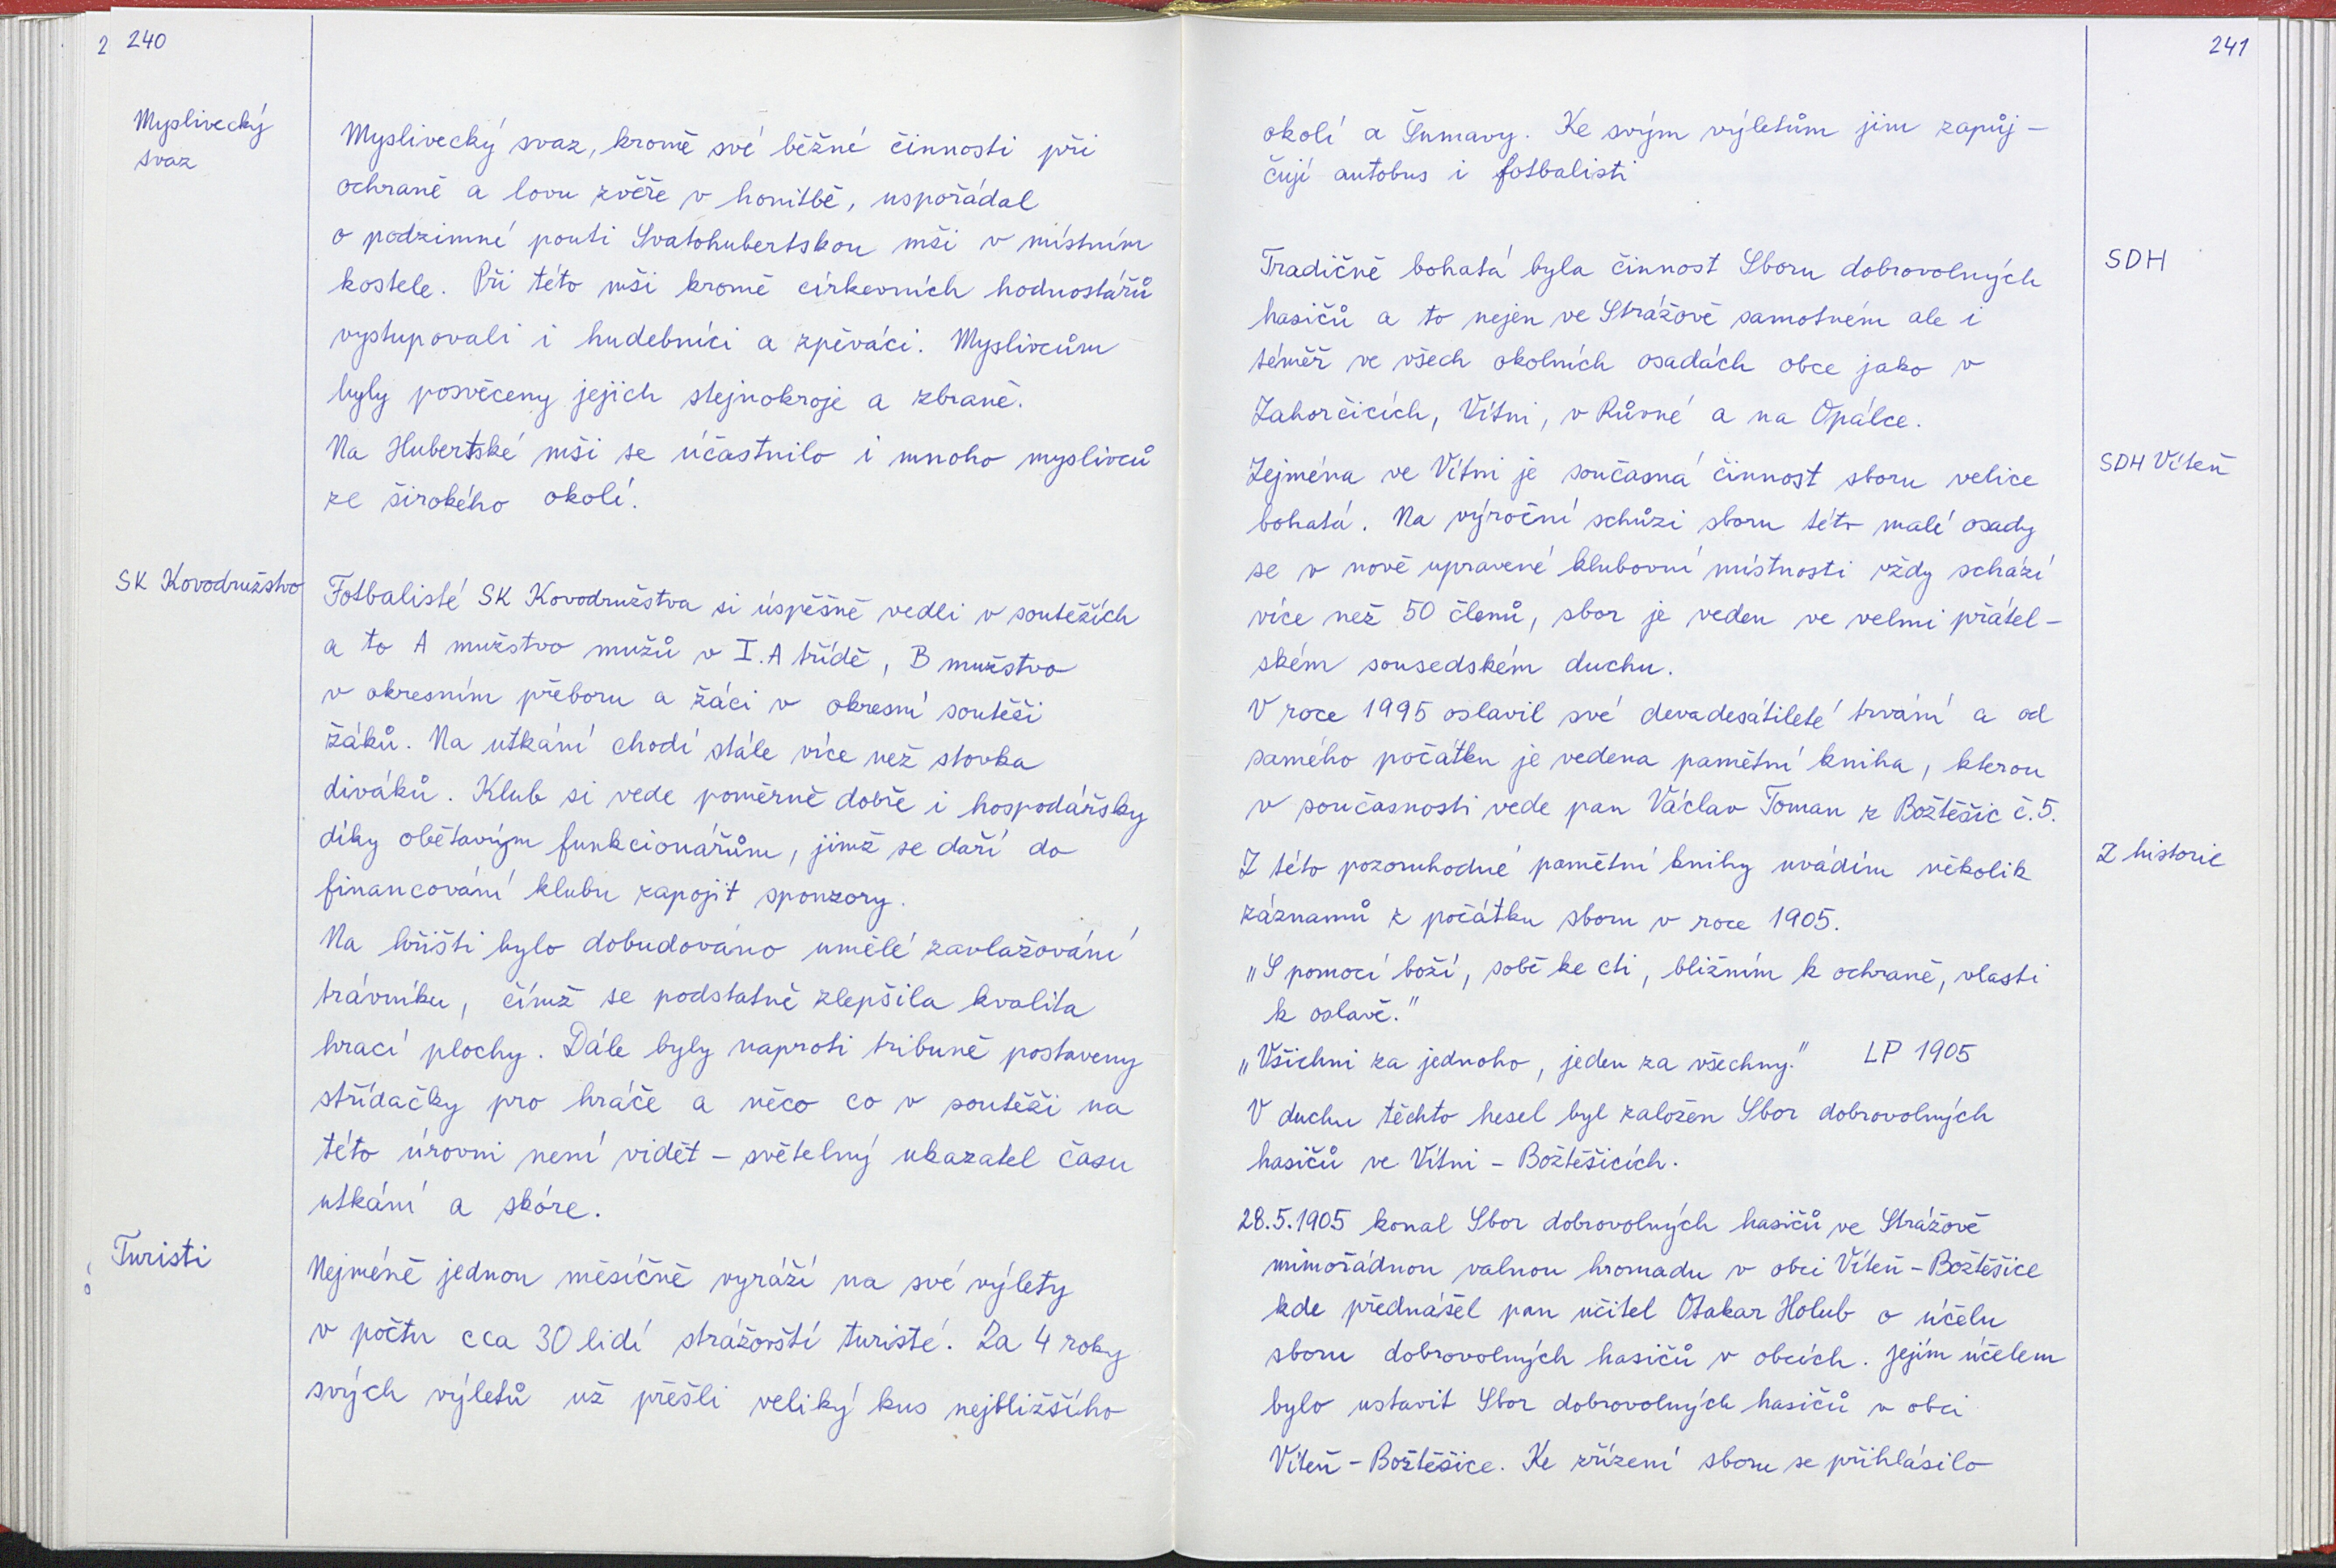 240
Myslivecký
svaz
Myslivecký svaz, kromě své běžné činnosti při
ochraně a lovu zvěře v honitbě, uspořádal
o podzimné pouti Svatohubertskou mši v místním
kostele. Při této mši kromě církevních hodnostářů
vystupovali i hudebníci a zpěváci. Myslivcům
byly posvěceny jejich stejnokroje a zbraně.
Na Hubertské mši se účastnilo i mnoho myslivců
ze širokého okolí.
SK Kovodružstvo
Fotbalisté SK Kovodružstva si úspěšně vedli v soutěžích
a to A mužstvo mužů v I.A třídě, B mužstvo
v okresním přeboru a žáci v okresní soutěži
žáků. Na utkání chodí stále více než stovka
diváků. Klub si vede poměrně dobře i hospodářsky
díky obětavým funkcionářům, jimž se daří do
financování klubu zapojit sponzory.
Na hřišti bylo dobudováno umělé zavlažování
trávníku, čímž se podstatně zlepšila kvalita
hrací plochy. Dále byly naproti tribuně postaveny
střídačky pro hráče a něco co v soutěži na
této úrovni není vidět - světelný ukazatel času
utkání a skóre.
Turisti
Nejméně jednou měsíčně vyráží na své výlety
v počtu cca 30 lidí strážovští turisté. Za 4 roky
svých výletů už přešli veliký kus nejbližšího
241
okolí a Šumavy. Ke svým výletům jim zapůj-
čují autobus i fotbalisti
SDH
Tradičně bohatá byla činnost Sboru dobrovolných
hasičů a to nejen ve Strážově samotném ale i
téměř ve všech okolních osadách obce jako v
Zahorčicích, Vítni, v Růvné a na Opálce.
SDH Víteň
Zejména ve Vítni je současná činnost sboru velice
bohatá. Na výroční schůzi sboru této malé osady
se v nově upravené klubovní místnosti vždy schází
více než 50 členů, sbor je veden ve velmi přátel-
ském sousedském duchu.
V roce 1995 oslavil své devadesátileté trvání a od
samého počátku je vedena pamětní kniha, kterou
v současnosti vede pan Václav Toman z Božtěšic č.5.
Z historie
Z této pozoruhodné pamětní knihy uvádím několik
záznamů z počátku sboru v roce 1905.
„S pomocí boží, sobě ke cti, bližním k ochraně, vlasti
k oslavě."
„Všichni za jednoho, jeden za všechny." LP 1905
V duchu těchto hesel byl založen Sbor dobrovolných
hasičů ve Vítni - Božtěšicích.
28.5.1905 konal Sbor dobrovolných hasičů ve Strážově
mimořádnou valnou hromadu v obci Víteň - Božtěšice
kde přednášel pan učitel Otakar Holub o účelu
sboru dobrovolných hasičů v obcích. Jejím účelem
bylo ustavit Sbor dobrovolných hasičů v obci
Víteň - Božtěšice. Ke zřízení sboru se přihlásilo